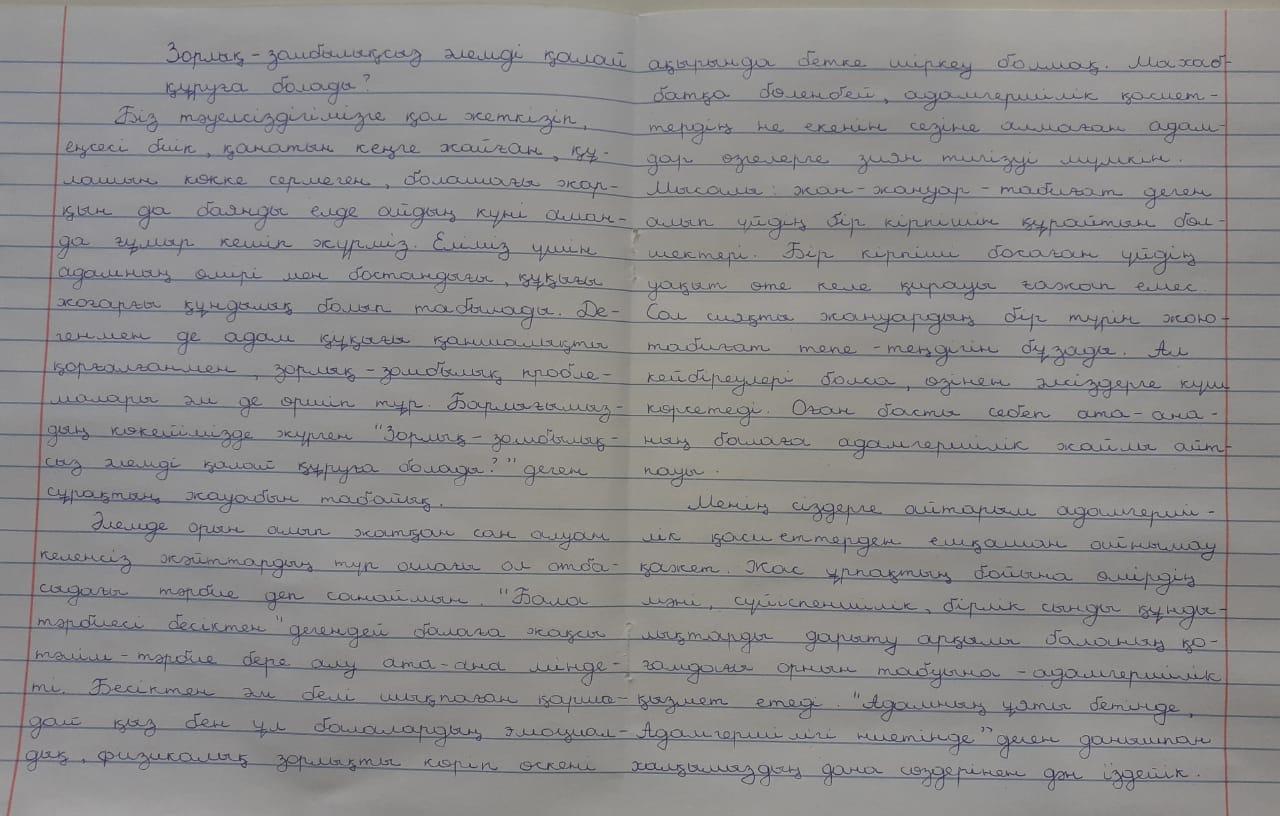 Зорлық-зомбылықсыз әлемді қалай
құруға болады?
Біз тәуелсіздігімізге қол жеткізіп,
еңсесі биік, қанатын кеңге жайған, құ-
лашын көкке сермеген, болашағы жар-
қын да баянды елде айдың күні аман-
да ғұмыр кешіп жүрміз. Еліміз үшін
адамның өмірі мен бостандығы, құқығы
жоғарғы құндылық болып табылады. Де-
генмен де адам құқығы қаншалықты
қорғалғанмен, зорлық-зомбылық пробле-
малары әлі де өршіп тұр. Барлығымыз-
дың көкейімізде жүрген "Зорлық-зомбылық-
сыз әлемді қалай құруға болады?" деген
сұрақтың жауабын табайық.
Әлемде орын алып жатқан сан алуан
келенсіз жәйттардың түп ошағы ол отба-
сыдағы тәрбие деп санаймын. "Бала
тәрбиесі бесіктен" дегендей балаға жақсы
тәлім-тәрбие бере алу ата-ана мінде-
ті. Бесіктен әлі белі шықпаған қарша-
дай қыз бен ұл балалардың эмоциал-
дық, физикалық зорлықты көріп өскені
ақырында бетке шіркеу болмақ. Махаб-
батқа бөленбей, адамгершілік қасиет-
тердің не екенін сезіне алмаған адам-
дар өзгелерге зиян тигізуі мүмкін.
Мысалы: жан-жануар - табиғат деген
алып үйдің бір кірпішін құрайтын бөл-
шектері. Бір кірпіші босаған үйдің
уақыт өте келе қирауы ғажап емес.
Сол сияқты жануардың бір түрін жою-
табиғат тепе-теңдігін бұзады. Ал
кейбіреулері болса, өзінен әлсіздерге күш
көрсетеді. Оған басты себеп ата-ана-
ның балаға адамгершілік жайлы айт-
пауы.
Менің сіздерге айтарым адамгерші-
лік қасиеттерден ешқашан айнымау
қажет. Жас ұрпақтың бойына өмірдің
мәні, сүйіспеншілік, бірлік сынды құнды-
лықтарды дарыту арқылы баланың қо-
ғамдағы орнын табуына - адамгершілік
қызмет етеді. "Адамның ұяты бетінде,
Адамгершілігі ниетінде" деген данышпан
халқымыздың дана сөздерінен дән іздейік.